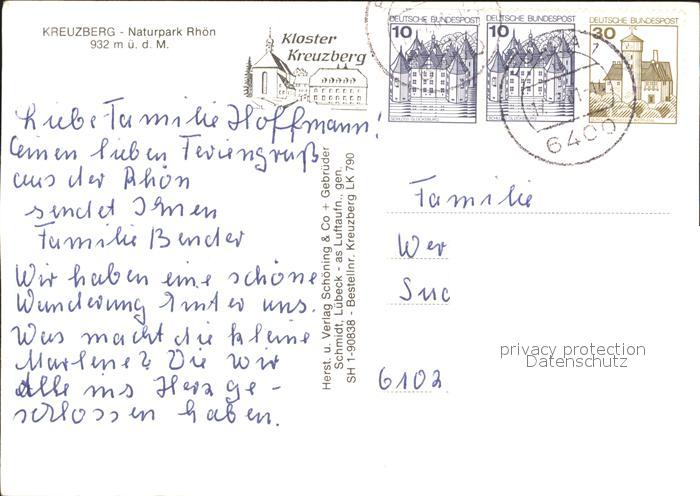 KREUZBERG - Naturpark Rhön
932 m ü. d. M.
Kloster
Kreuzberg
DEUTSCHE BUNDESPOST
10
SCHLOSS GLÜCKSBURG
DEUTSCHE BUNDESPOST
10
SCHLOSS GLÜCKSBURG
DEUTSCHE BUNDESPOST
30
6400
Liebe Familie Hoffmann!
Einen lieben Feriengruß
aus der Rhön
sendet Ihnen
Familie Bender
Wir haben eine schöne
Wanderung hinter uns.
Was macht die kleine
Marlene? Die wir
Alle ins Herz ge-
schlossen haben.
Herst. u. Verlag Schöning & Co + Gebrüder
Schmidt, Lübeck - as Luftaufn., gen.
SH 1-90838 - Bestellnr. Kreuzberg LK 790
Familie
Wer
Suc
6102
privacy protection
Datenschutz